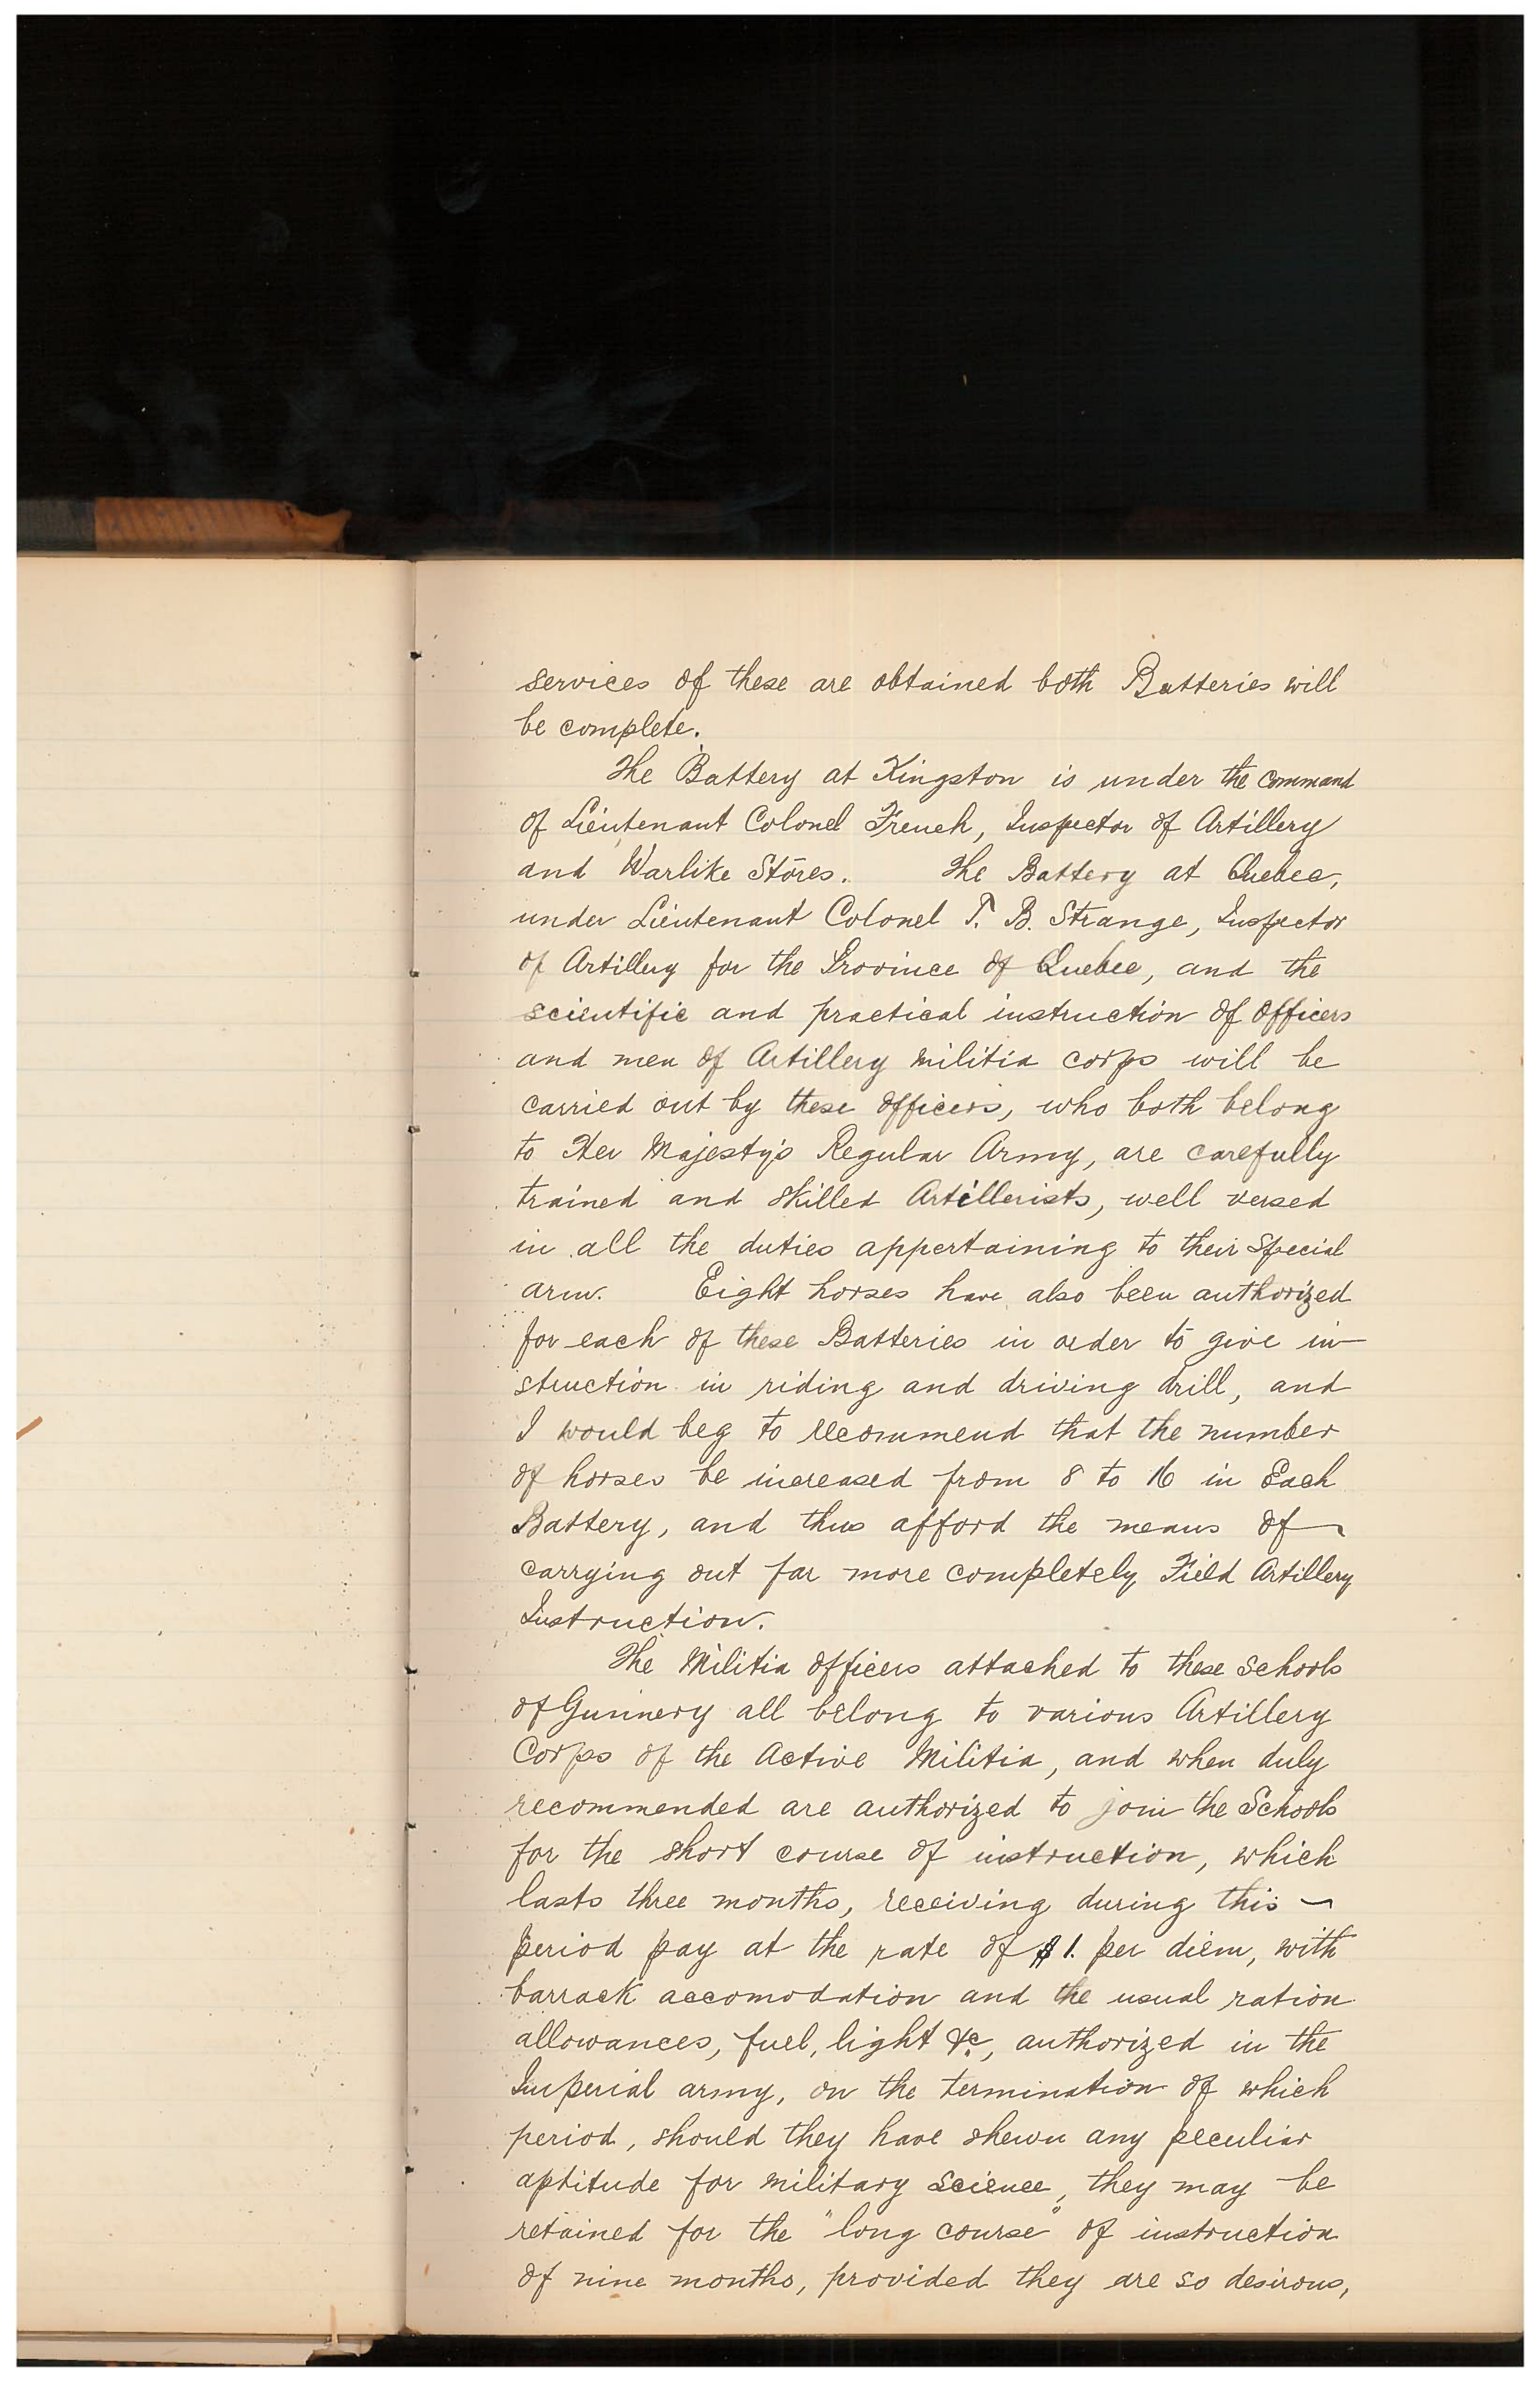 services of these are obtained both Batteries will
be complete.
The Battery at Kingston is under the command
of Lieutenant Colonel French, Inspector of Artillery
and Warlike Stores. The Battery at Quebec,
under Lieutenant Colonel T. B. Strange, Inspector
of Artillery for the Province of Quebec, and the
scientific and practical instruction of officers
and men of Artillery militia corps will be
carried out by these officers, who both belong
to Her Majesty's Regular Army, are carefully
trained and skilled Artillerists, well versed
in all the duties appertaining to their special
arm. Eight horses have also been authorized
for each of these Batteries in order to give in
struction in riding and driving drill, and
I would beg to recommend that the number
of horses be increased from 8 to 16 in Each
Battery, and thus afford the means of
carrying out far more completely Field Artillery
Instruction.
The Militia officers attached to these schools
of Gunnery all belong to various Artillery
Corps of the Active Militia, and when duly
recommended are authorized to join the Schools
for the short course of instruction, which
lasts three months, receiving during this
period pay at the rate of $1. per diem, with
barrack accomodation and the usual ration
allowances, fuel, light &c, authorized in the
Imperial army, on the termination of which
period, should they have shewn any peculiar
aptitude for military science, they may be
retained for the "long course" of instruction
of nine months, provided they are so desirous,